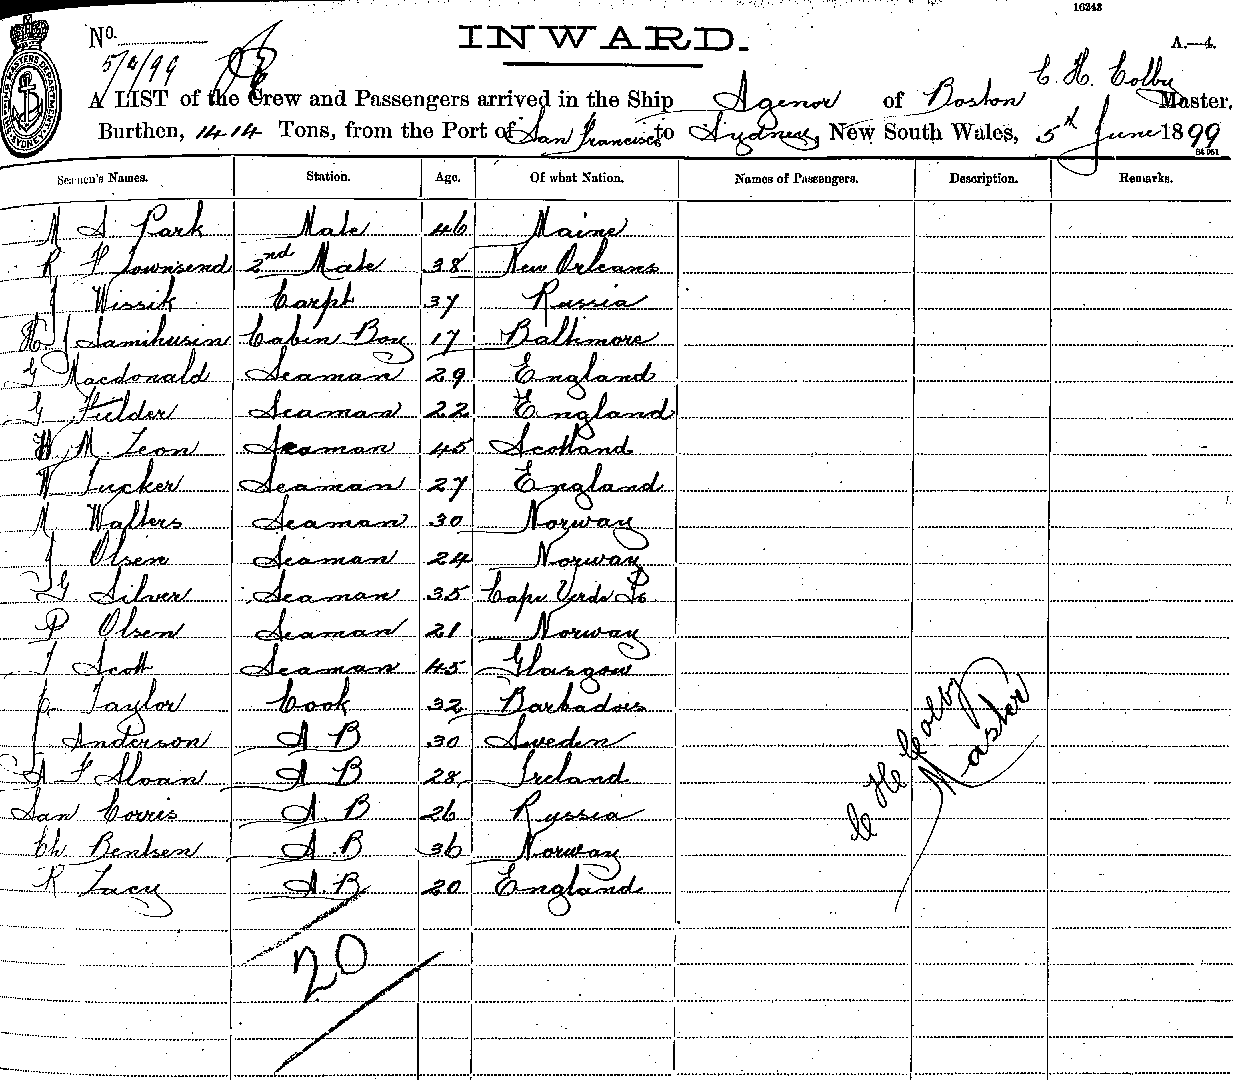 16243
No.
INWARD.
A.—4.
5/6/99
C. H. Colby
A LIST of the Crew and Passengers arrived in the Ship Agenor of Boston Master,
Burthen, 1414 Tons, from the Port of San Francisco to Sydney, New South Wales, 5th June 1899
Seamen's Names. Station. Age. Of what Nation. Names of Passengers. Description. Remarks.
M S Park Mate 46 Maine
R F Townsend 2nd Mate 38 New Orleans
J Wissik Carpt 37 Russia
H J Cabin Boy 17 Baltimore
G Macdonald Seaman 29 England
G Fielder Seaman 22 England
W M Leon Seaman 45 Scotland
W Tucker Seaman 27 England
M Walters Seaman 30 Norway
J Olsen Seaman 24 Norway
G Silver Seaman 35 Cape Verde Is
P Olsen Seaman 21 Norway
T Scott Seaman 45 Glasgow
C Taylor Cook 32 Barbadois
J Anderson A B 30 Sweden
A F Sloan A B 28 Ireland
San Corris A. B 26 Ryssia
Ch Bentsen A. B 36 Norway
R Lacy A. B 20 England
20
C H Colby
Master